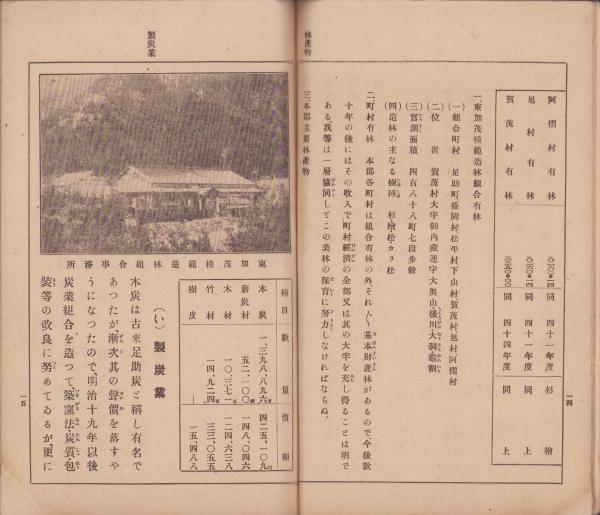 林産物
阿摺村有林 同 四十一年度 杉 檜
旭村有林 同 四十一年度 同 上
賀茂村有林 同 四十四年度 同 上
一、東加茂模範造林組合有林
(一)組合町村 足助町盛岡村松平村下山村賀茂村旭村阿摺村
(二)位 置 賀茂村大字御内蔵連字大奥山後川大洞
(三)實測面積 四百八十八町七段歩餘
(四)造林の主なる樹種 杉檜松カラ松
二、町村有林 本郡各町村は組合有林の外それ〲基本財産林があるので、今後數
十年の後にはその收入で町村經濟の全部又は其の大半を充し得ることは明で
ある。我等は一層協同してこの美林の保育に努力しなければならぬ。
三本郡主要林産物
一四
製炭業
東加茂模範造林組合事務所
種目 數量 價額
木炭 一、三九八、八九六 四二五、一〇九円
薪炭材 五二、一〇〇 一四八、〇四六
木材 一〇、三七一 一二四、六三八
竹材 一四、九二四 三三、〇五五
樹皮 ― 一五、四八八
(い) 製炭業
木炭は古來足助炭と稱し有名で
あつたが、漸次其の聲價を落すや
うになつたので、明治十九年以後
炭業組合を造つて、築窯法・炭質・包
裝等の改良に努めてゐるが、更に
一五